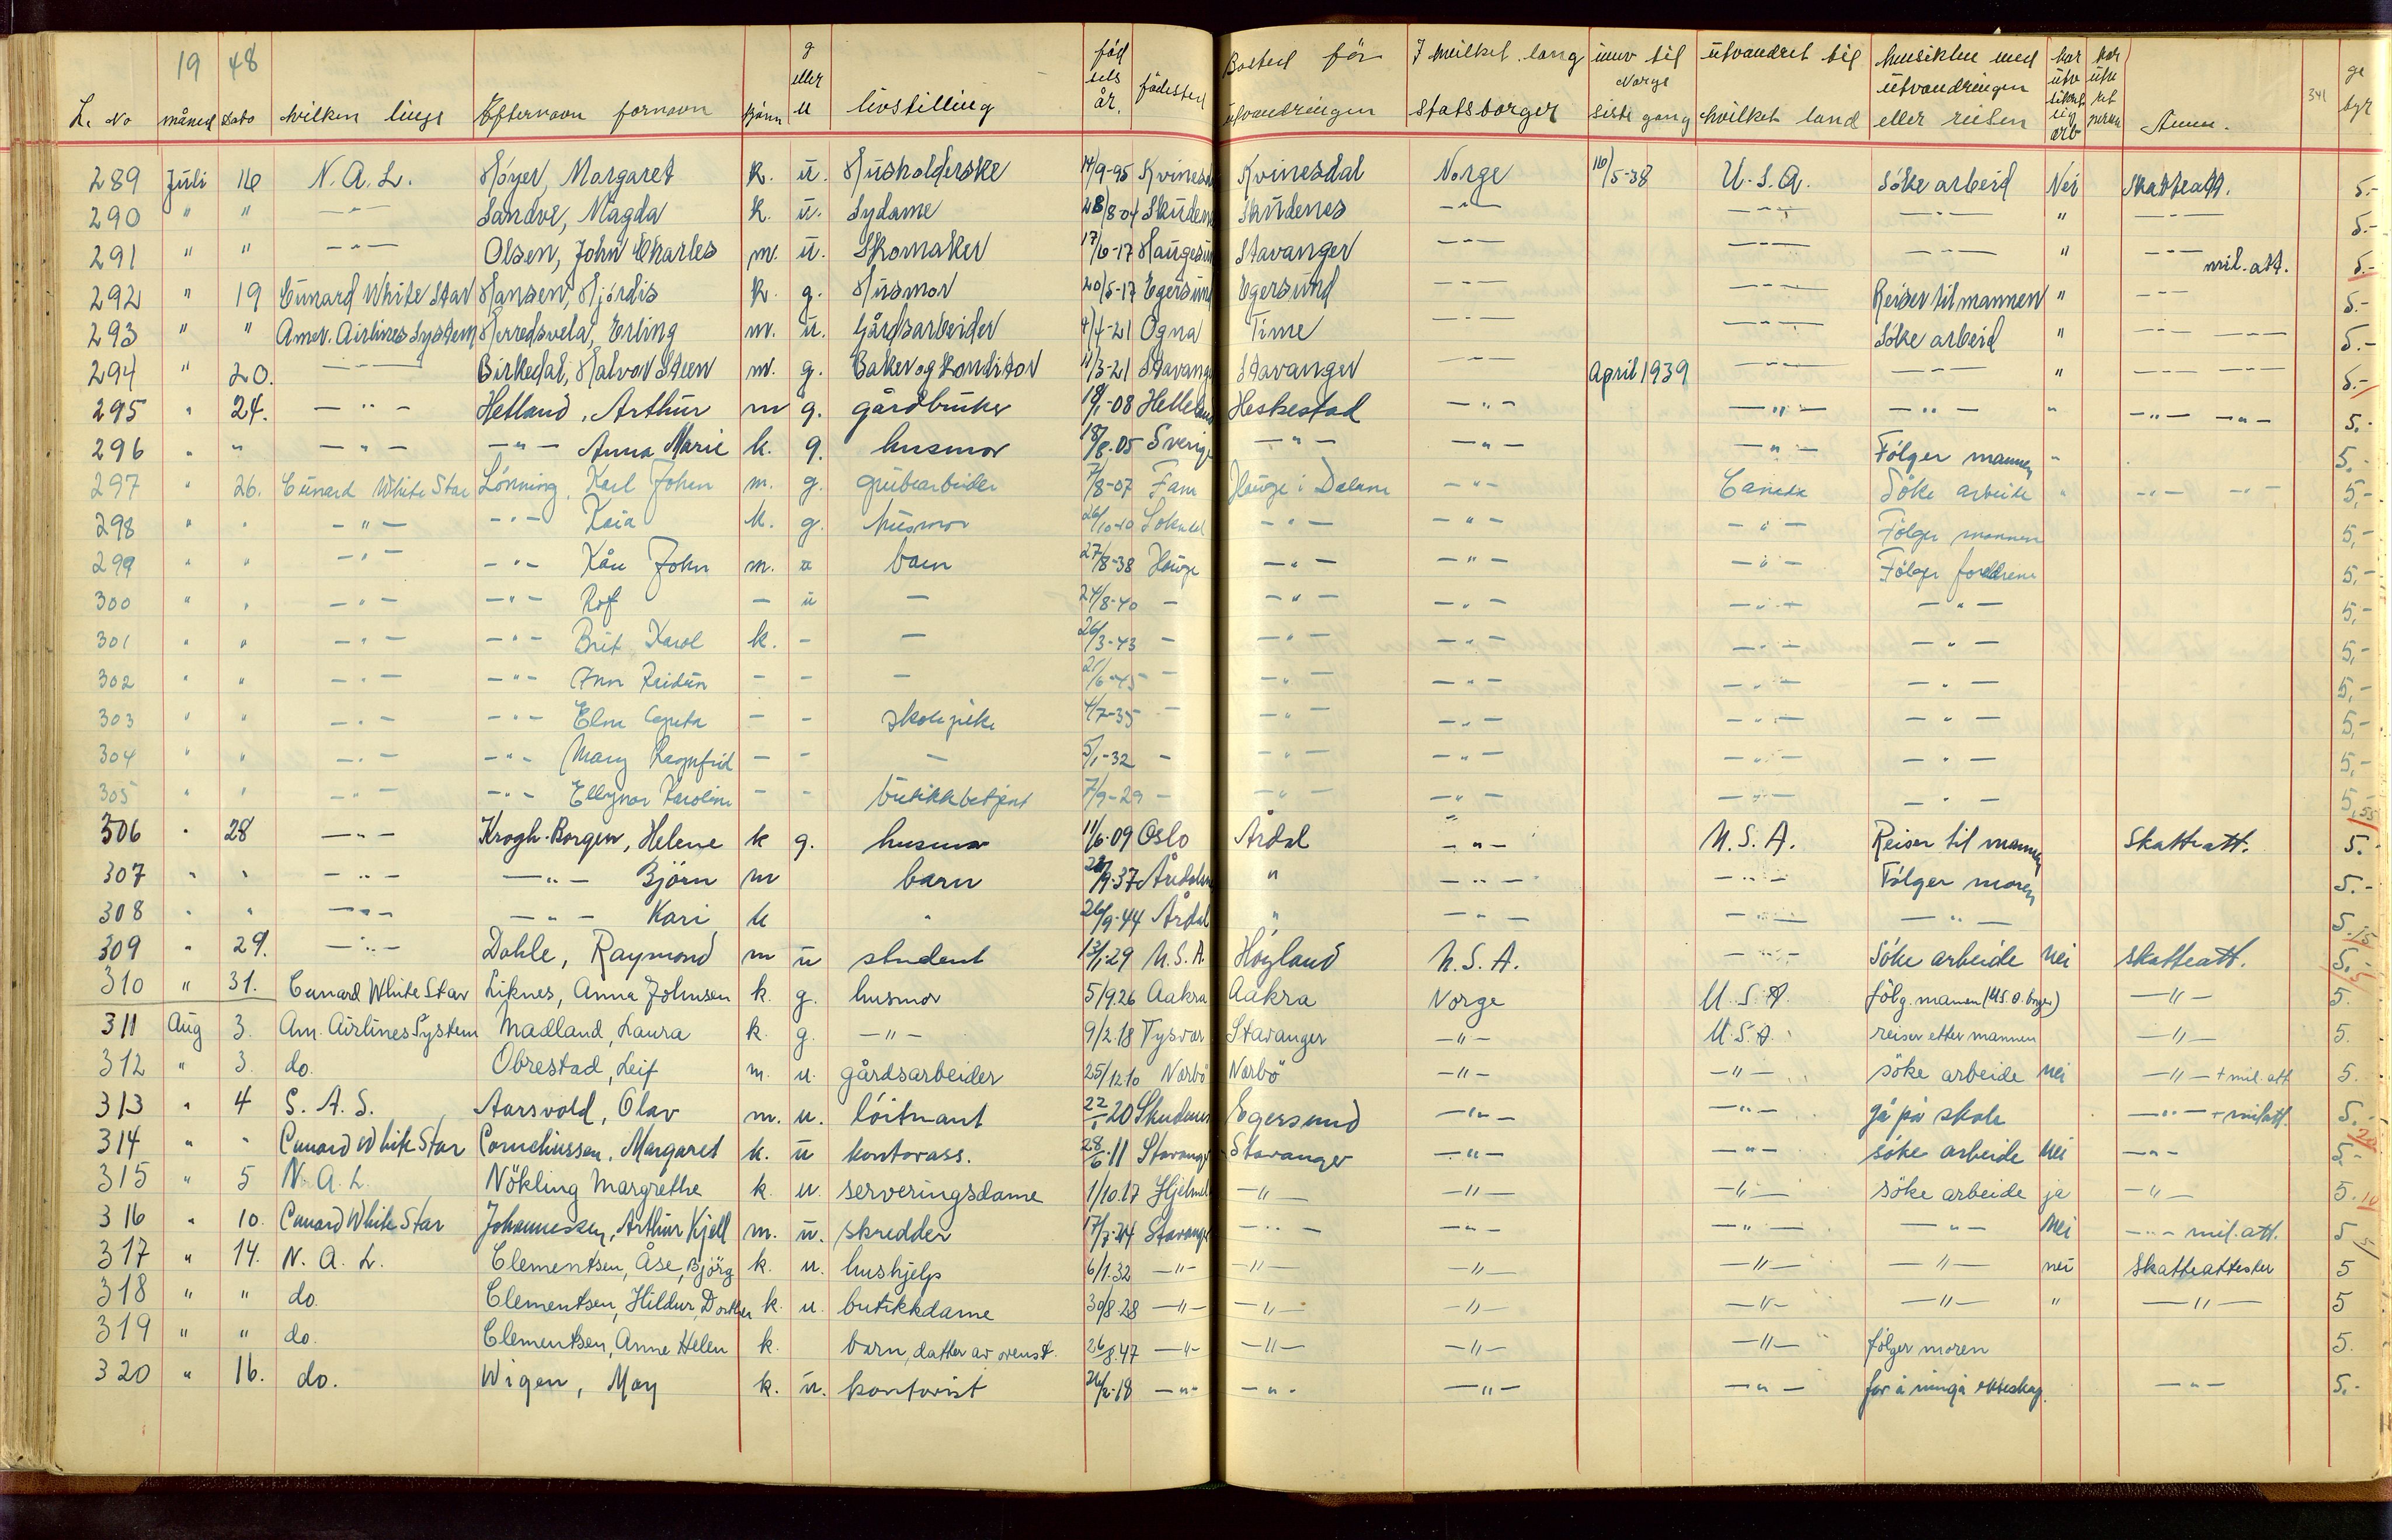 19 48 g fød Bosted før I hvilket land innv til utvandret til hensikten med har har ge
eller sels Norge utvandringen utv utv
L. No måned Dato hvilken linje Efternavn fornavn kjønn u livstilling år. fødested utvandringen statsborger siste gang hvilket land eller reisen arb Anm. 341 byr
289 Juli 16 N. A. L. Høyer, Margaret k. u. Husholderske 14/9-95 Kvinesd Kvinesdal Norge 16/5-38 U.S.A. Søke arbeid Nei Skatteatt. 5.-
290 " " -"- Sandve, Magda k. u. Sydame 28/8-04 Skudenes Skudenes -"- -"- -"- " -"- 5.-
291 " " -"- Olsen, John Charles m. u. Skomaker 17/6-17 Haugesun Stavanger -"- -"- -"- " -"- mil. att. 5.-
292 " 19 Cunard White Star Hansen, Hjørdis k. g. Husmor 20/5-17 Egersund Egersund -"- -"- Reiser til mannen " -"- 5.-
293 " " Amer. Airlines System Herredsvela, Erling m. u. Gårdsarbeider 4/4-21 Ogna Time -"- -"- Søke arbeid " -"- -"- 5.-
294 " 20. -"- Birkedal, Halvor Steen m. g. Baker og Konditor 11/3-21 Stavang Stavanger -"- April 1939 -"- -"- " -"- -"- 5.-
295 " 24. -"- Helland, Arthur m g. gårdbruker 19/1-08 Helleland Heskestad -"- -"- -"- " -"- -"- 5.-
296 " " -"- -"- Anna Marie k. g. husmor 18/8.05 Sverige -"- -"- -"- Følger mannen " 5.-
297 " 26. Cunard White Star Lønning, Karl Johan m. g. grubearbeider 7/8-07 Fana Hauge i Dalane -"- Canada Søke arbeide " -"- -"- 5,-
298 " " -"- -"- Kaia k. g. husmor 26/10-10 Sokndal -"- -"- -"- Følger mannen 5,-
299 " " -"- -"- Kåre John m. u barn 27/8-38 Hauge -"- -"- -"- Følger foreldrene 5,-
300 " " -"- -"- Rolf - u - 24/8-40 - -"- -"- -"- -"- 5,-
301 " " -"- -"- Brit Karol k. - - 26/3-43 - -"- -"- -"- -"- 5,-
302 " " -"- -"- Ann Reidun - - - 21/6-45 - -"- -"- -"- -"- 5,-
303 " " -"- -"- Elna - - skolepike 4/7-35 - -"- -"- -"- -"- 5,-
304 " " -"- -"- Mary Ragnfrid - - - 5/1-32 - -"- -"- -"- -"- 5,-
305 " " -"- -"- Ellynor Karoline - - butikkbetjent 7/9-29 - -"- -"- -"- -"- 5,-
306 " 28 -"- Krogh-Borgen, Helene k g. husmor 11/6.09 Oslo Årdal -"- U.S.A. Reiser til mannen Skatteatt. 5.-
307 " " -"- -"- Bjørn m barn 28/9.37 " -"- -"- Følger moren 5.-
308 " " -"- -"- Kari k " 26/9-44 Årdal " -"- -"- -"- 5.-
309 " 29. -"- Dahle, Raymond m u student 13/1.29 U.S.A. Høyland U.S.A. -"- Søke arbeide nei skatteatt. 5.-
310 " 31. Cunard White Star Liknes, Anna Johnsen k. g. husmor 5/9.26 Aakra Aakra Norge U.S.A. følg. mannen (U.S.O. borger) -"- 5.
311 Aug 3. Am. Airlines System Madland, Laura k. g. -"- 9/2.18 Tysvær Stavanger -"- U.S.A. reiser etter mannen -"- 5.
312 " 3. do. Obrestad, Leif m. u. gårdsarbeider 25/12.10 Nærbø Nærbø -"- -"- søke arbeide nei -"- + mil. att 5.
313 " 4 S. A. S. Aarsvold, Olav m. u. løitnant 22/1 20 Skudenes Egersund -"- -"- gå på skole -"- + mil att. 5.-
314 " " Cunard White Star Corneliussen, Margaret k. u kontorass. 28/6.11 Stavanger Stavanger -"- -"- søke arbeide nei -"- 5.-
315 " 5 N. A. L. Nökling Margrethe k. u. serveringsdame 1/10.17 Hjelmel -"- -"- -"- søke arbeide ja -"- 5.
316 " 10. Cunard White Star Johannessen, Arthur Kjell m. u. skredder 17/7-24 Stavanger -"- -"- -"- -"- Nei -"- mil. att. 5
317 " 14. N. A. L. Clementsen, Åse, Bjørg k. u. hushjelp 6/1.32 -"- -"- -"- -"- -"- nei Skatteattester 5
318 " " do. Clementsen, Hildur, Dorthea k. u. butikkdame 30/8.28 -"- -"- -"- -"- -"- " -"- 5
319 " " do. Clementsen, Anne Helen k. barn, datter av ovenst. 26/8.47 -"- -"- -"- -"- følger moren 5.
320 " 16. do. Wigen, May k. u. kontorist 26/2-18 -"- -"- -"- -"- for å inngå ekteskap. -"- 5.-